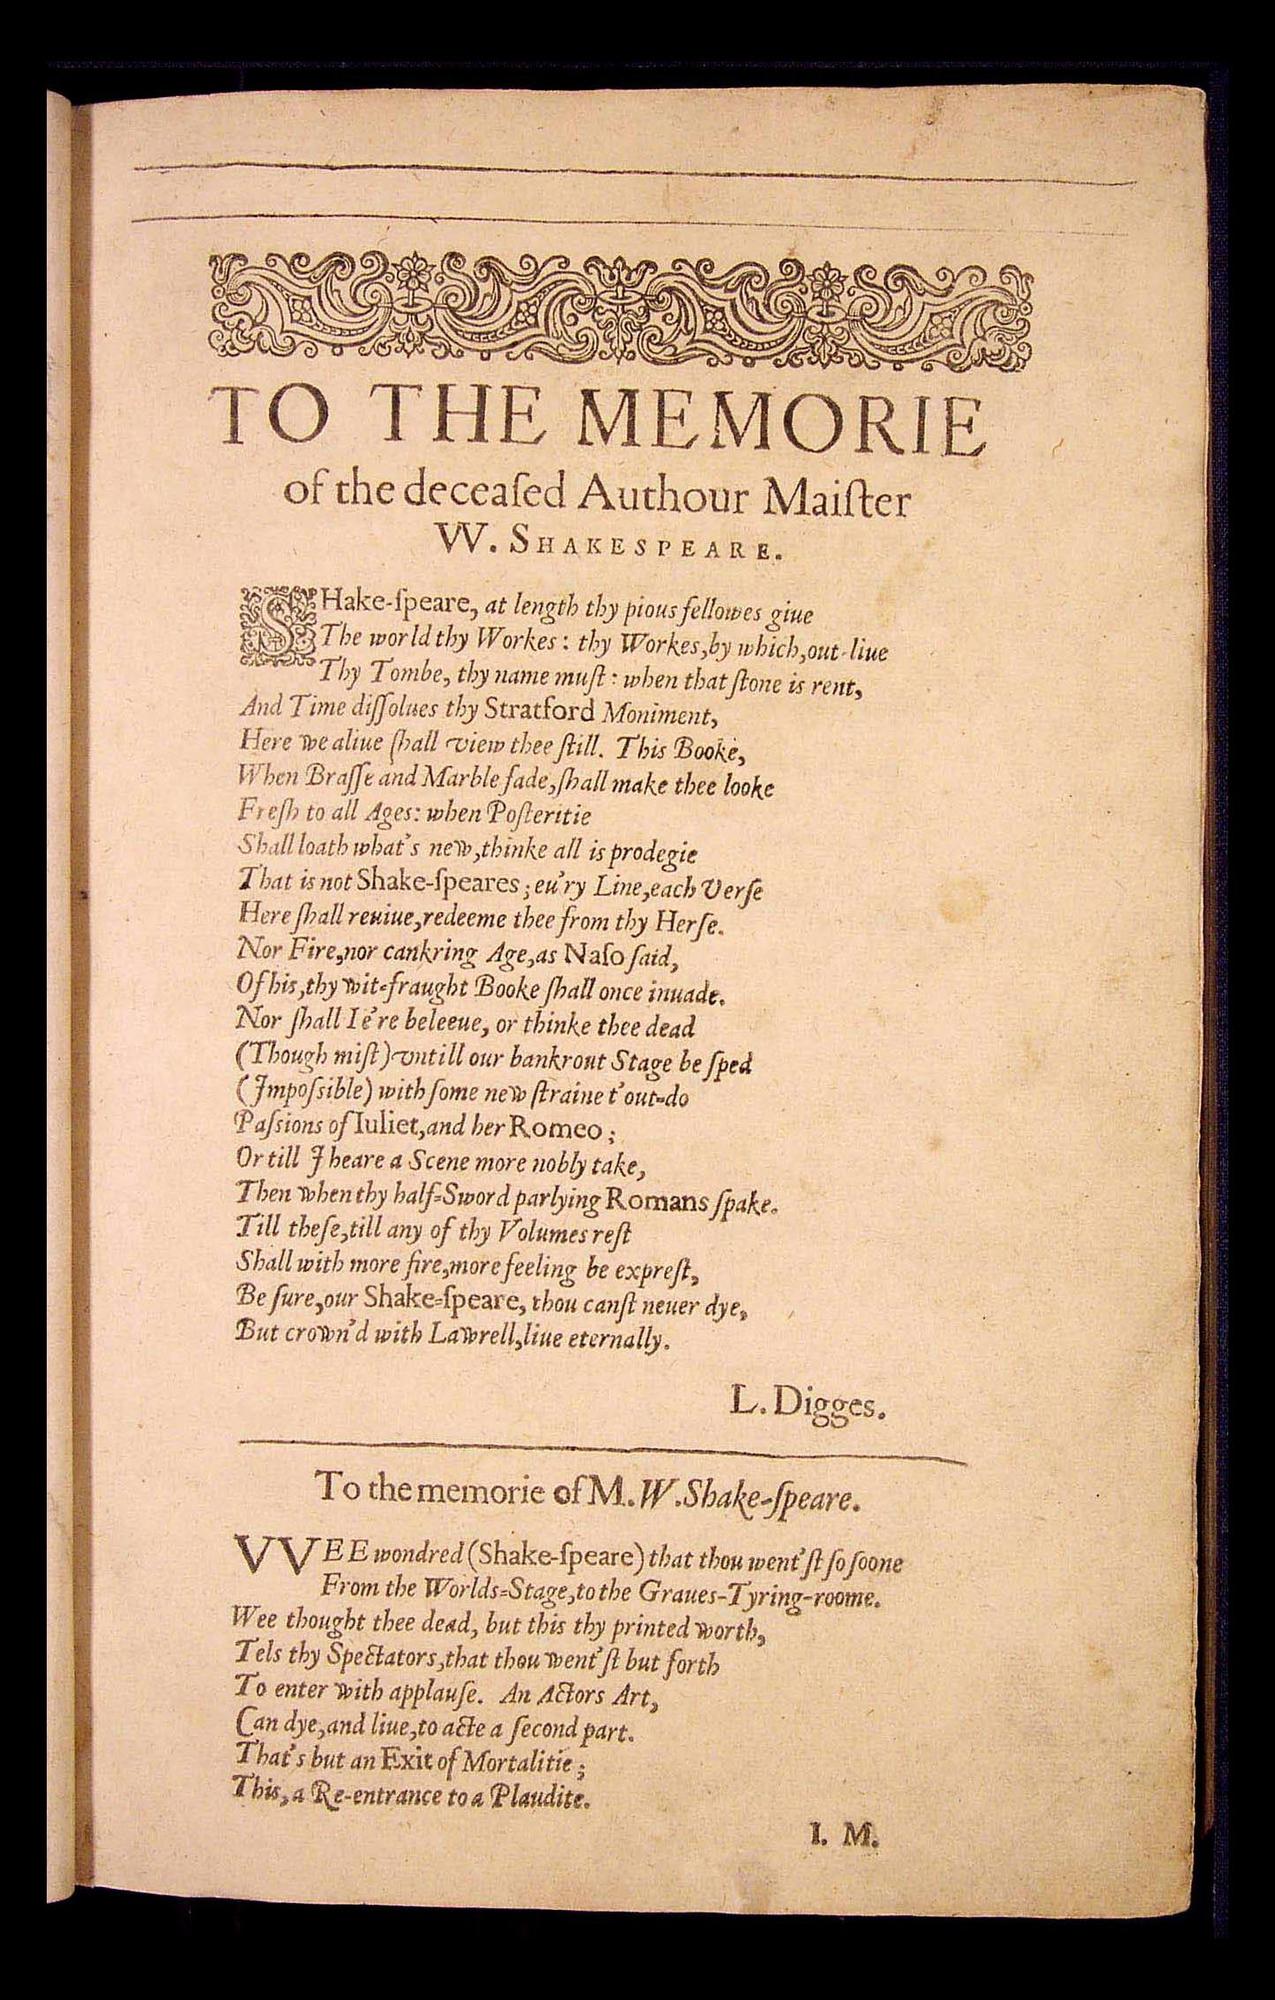 TO THE MEMORIE
of the deceaſed Authour Maiſter
VV. SHAKESPEARE.
SHake-ſpeare, at length thy pious fellowes giue
The world thy Workes: thy Workes, by which, out-liue
Thy Tombe, thy name muſt: when that ſtone is rent,
And Time diſſolues thy Stratford Moniment,
Here we aliue ſhall view thee ſtill. This Booke,
When Braſſe and Marble fade, ſhall make thee looke
Freſh to all Ages: when Poſteritie
Shall loath what's new, thinke all is prodegie
That is not Shake-ſpeares; eu'ry Line, each Verſe
Here ſhall reuiue, redeeme thee from thy Herſe.
Nor Fire, nor cankring Age, as Naſo ſaid,
Of his, thy wit-fraught Booke ſhall once inuade.
Nor ſhall I e're beleeue, or thinke thee dead
(Though miſt) vntill our bankrout Stage be ſped
(Impoſsible) with ſome new ſtraine t'out-do
Paſsions of Iuliet, and her Romeo;
Or till I heare a Scene more nobly take,
Then when thy half-Sword parlying Romans ſpake.
Till theſe, till any of thy Volumes reſt
Shall with more fire, more feeling be expreſt,
Be ſure, our Shake-ſpeare, thou canſt neuer dye,
But crown'd with Lawrell, liue eternally.
L. Digges.
To the memorie of M. W. Shake-ſpeare.
VVEE wondred (Shake-ſpeare) that thou went'ſt ſo ſoone
From the Worlds-Stage, to the Graues-Tyring-roome.
Wee thought thee dead, but this thy printed worth,
Tels thy Spectators, that thou went'ſt but forth
To enter with applauſe. An Actors Art,
Can dye, and liue, to acte a ſecond part.
That's but an Exit of Mortalitie;
This, a Re-entrance to a Plaudite.
I. M.